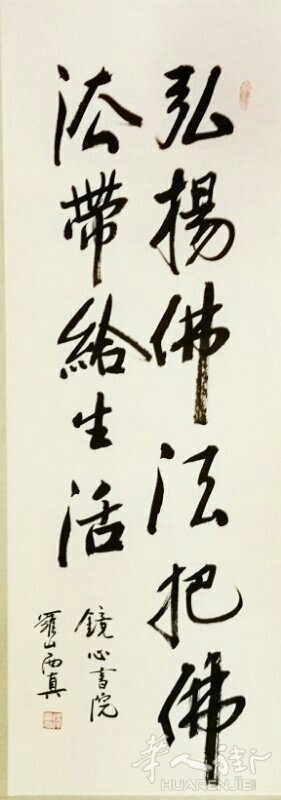 弘揚佛法把佛
法帶給生活
鏡心書院
羅山西真
华人街
HUARENJIE